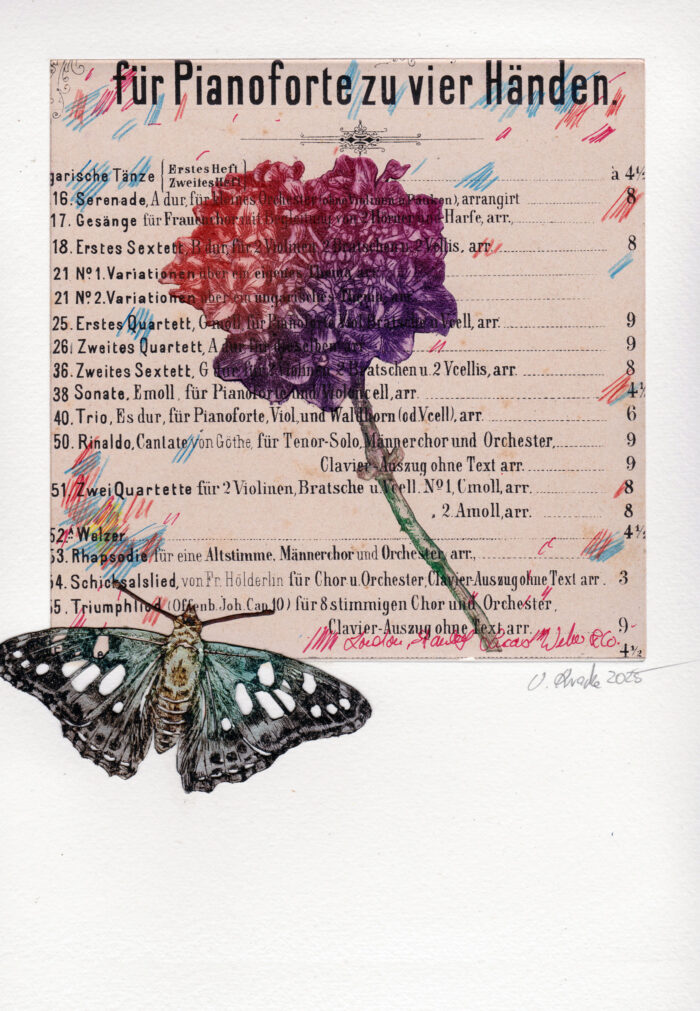 für Pianoforte zu vier Händen.
garische Tänze { Erstes Heft à 4½
Zweites Heft }
16. Serenade, A dur, für kleines Orchester (ohne Violinen u. Pauken), arrangirt 8
17. Gesänge für Frauenchor mit Begleitung von 2 Hörnern und Harfe, arr.,
18. Erstes Sextett, B dur, für 2 Violinen, 2 Bratschen u. 2 Vcllis, arr. 8
21 Nº 1. Variationen über ein eigenes Thema, arr.
21 Nº 2. Variationen über ein ungarisches Thema, arr.
25. Erstes Quartett, G moll, für Pianoforte, Viol. Bratsche u. Vcell, arr. 9
26. Zweites Quartett, A dur, für dieselben, arr. 9
36. Zweites Sextett, G dur, für 2 Violinen, 2 Bratschen u. 2 Vcellis, arr. 8
38 Sonate, E moll, für Pianoforte und Violoncell, arr. 4½
40. Trio, Es dur, für Pianoforte, Viol. und Waldhorn (od Vcell), arr. 6
50. Rinaldo, Cantate von Göthe, für Tenor-Solo, Männerchor und Orchester, 9
Clavier-Auszug ohne Text arr. 9
51. Zwei Quartette für 2 Violinen, Bratsche u. Vcell. Nº 1, C moll, arr. 8
" 2. A moll, arr. 8
52ᴬ Walzer 4½
53. Rhapsodie für eine Altstimme, Männerchor und Orchester, arr.,
54. Schicksalslied, von Fr. Hölderlin für Chor u. Orchester, Clavier-Auszug ohne Text arr. 3
55. Triumphlied (Offenb. Joh. Cap. 10) für 8 stimmigen Chor und Orchester,
Clavier-Auszug ohne Text arr. 9
4½
London, Stanley Weber & Co.
2025